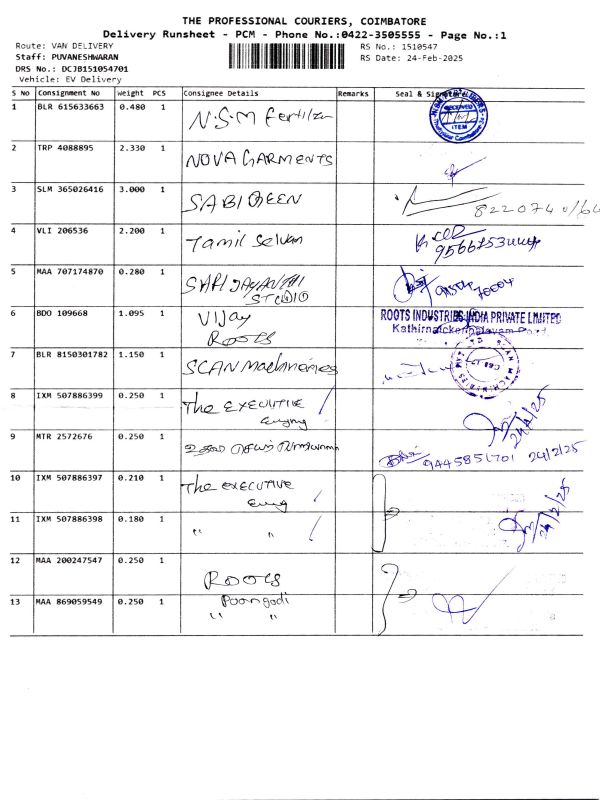 THE PROFESSIONAL COURIERS, COIMBATORE
Delivery Runsheet - PCM - Phone No.:0422-3505555 - Page No.:1
Route: VAN DELIVERY
Staff: PUVANESHWARAN
DRS No.: DCJB151054701
Vehicle: EV Delivery
RS No.: 1510547
RS Date: 24-Feb-2025
S No Consignment No Weight PCS Consignee Details Remarks Seal &
1 BLR 615633663 0.480 1 N.S.M
RECEIVED
ITEM
2 TRP 4088895 2.330 1 NOVA GARMENTS
3 SLM 365026416 3.000 1 SABIQEEN
4 VLI 206536 2.200 1 Tamil Selvan
5 MAA 707174870 0.280 1 SHRI JAYANTHI
6 BDO 109668 1.095 1 Vijay
ROOTS
ROOTS INDUSTRIES INDIA PRIVATE LIMITED
7 BLR 8150301782 1.150 1 SCAN Machineries
8 IXM 507886399 0.250 1 The EXECUTIVE
24/2/25
9 MTR 2572676 0.250 1
9445851701 24/2/25
10 IXM 507886397 0.210 1 The EXECUTIVE
11 IXM 507886398 0.180 1 " "
24/2/25
12 MAA 200247547 0.250 1 ROOTS
13 MAA 869059549 0.250 1 Poongodi
" "